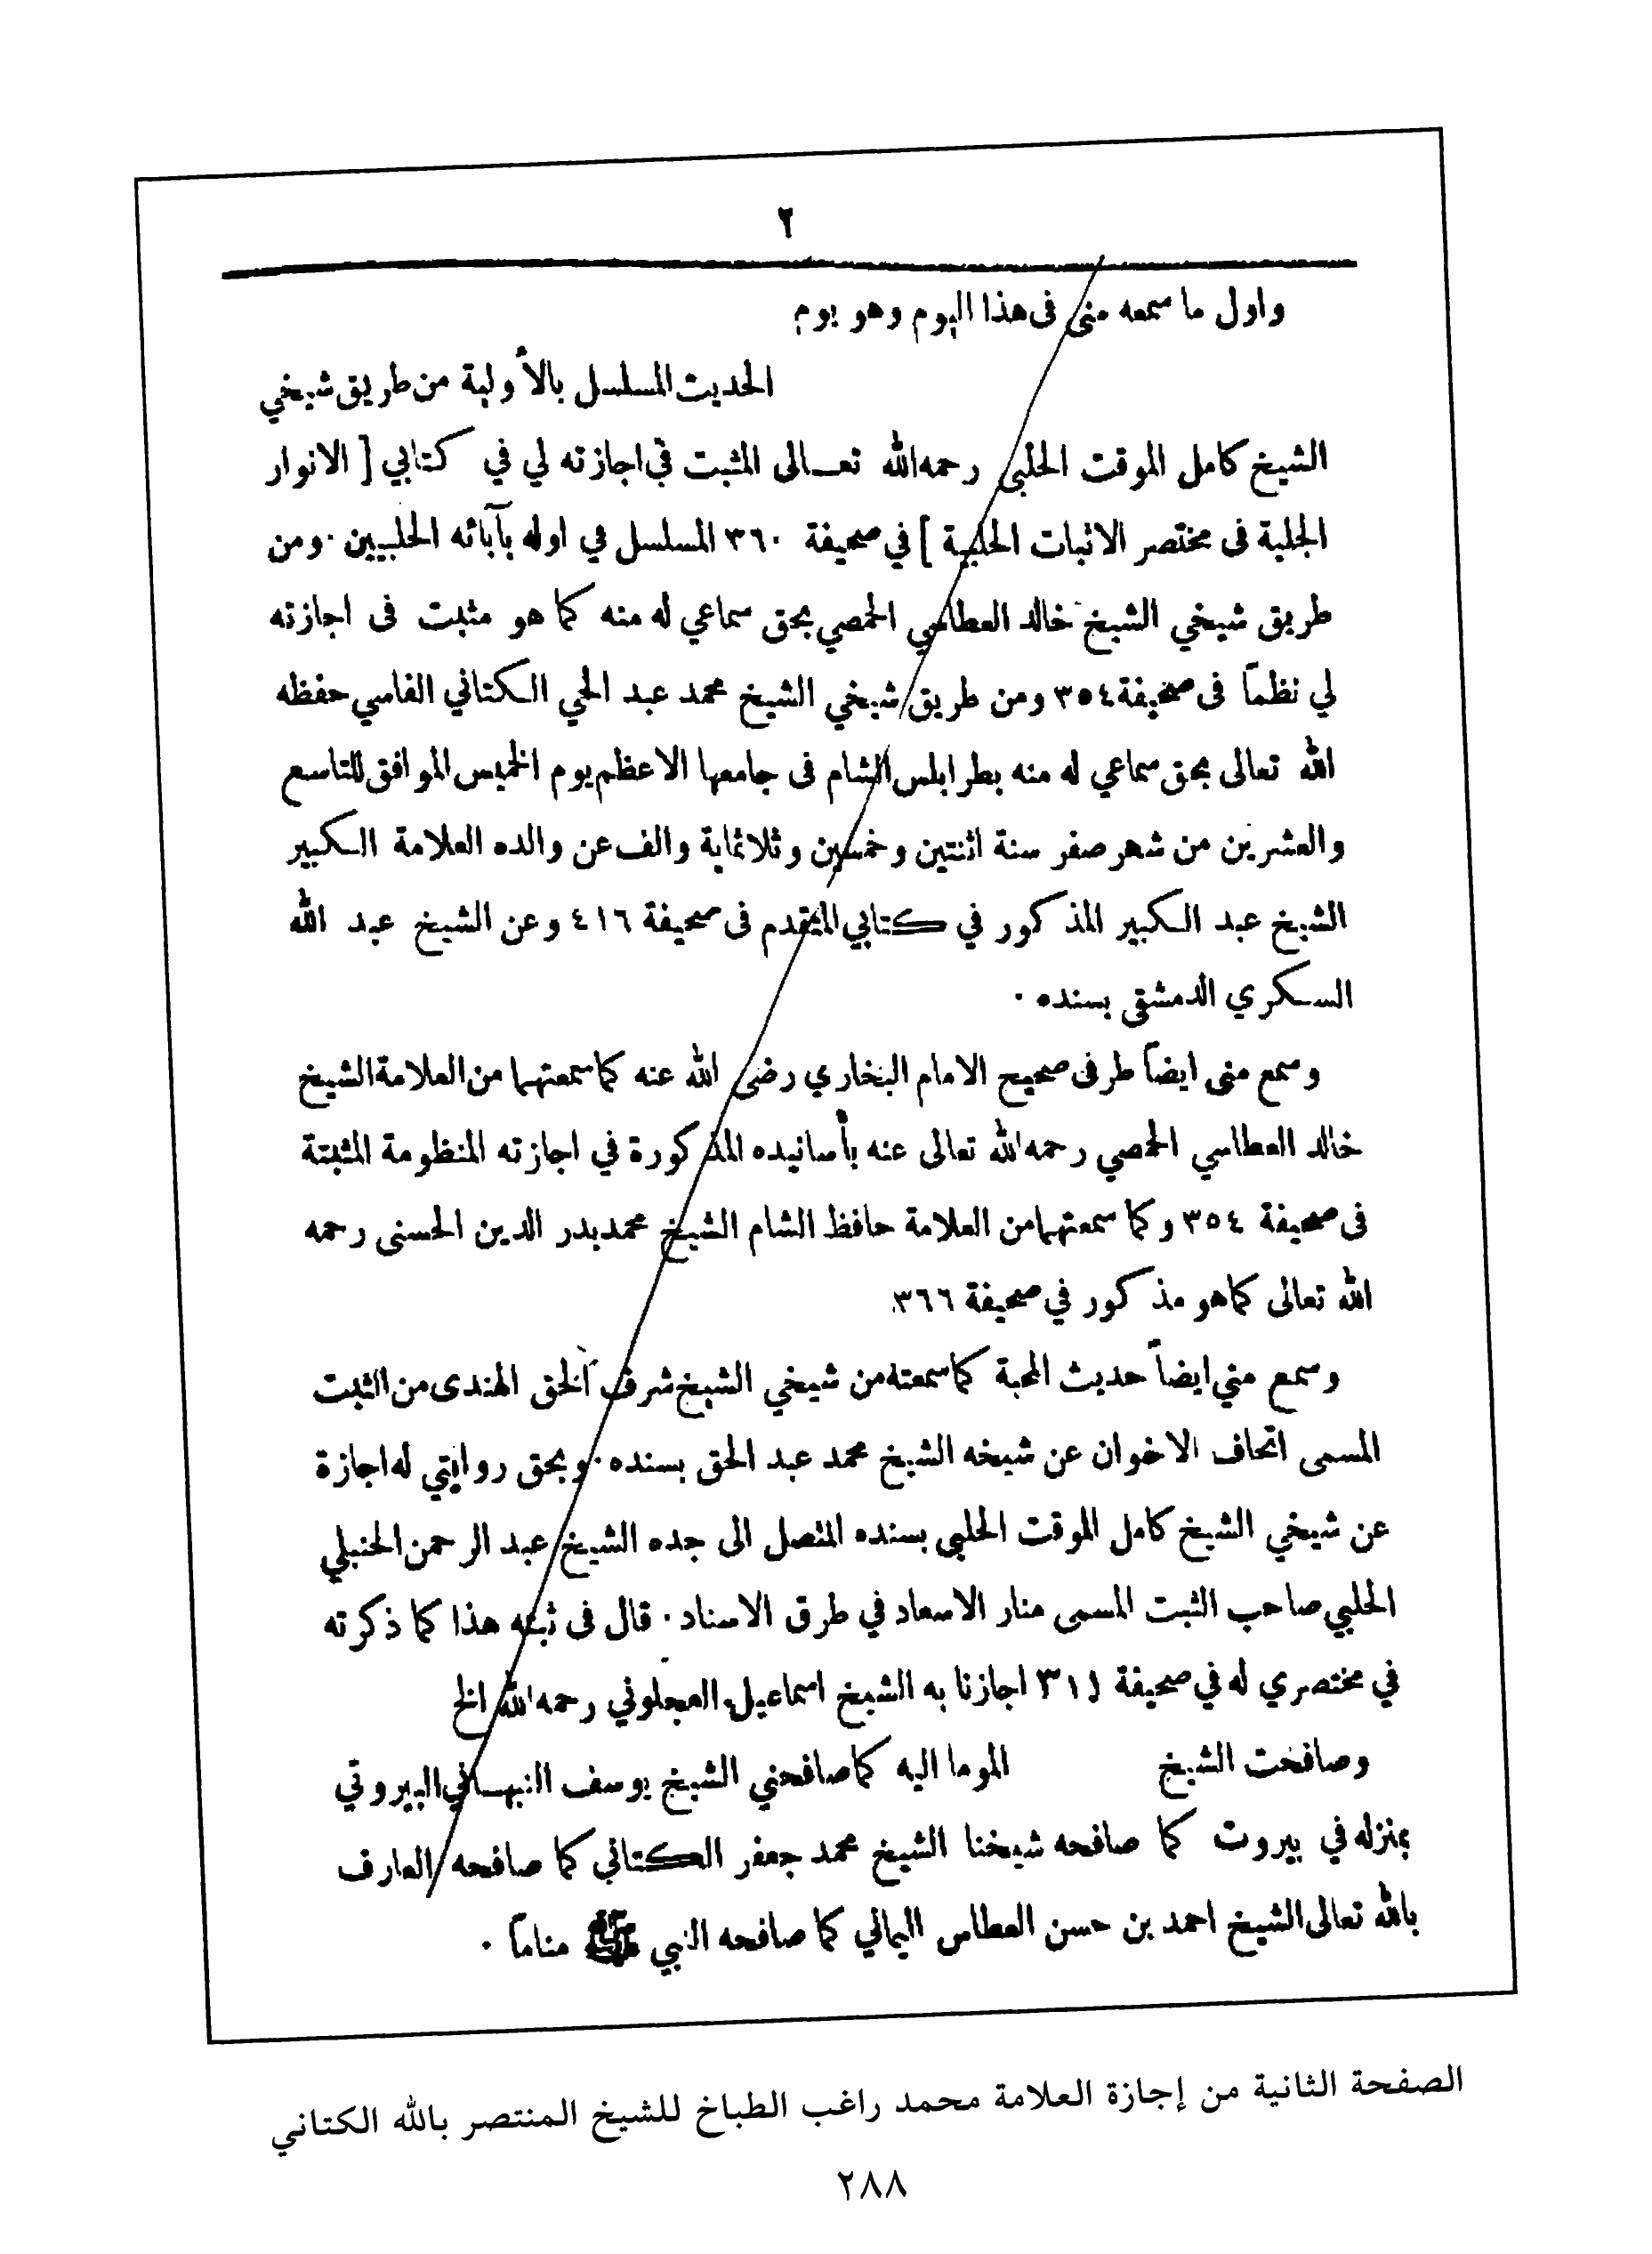 ٢
واول ما سمعه مني فى هذا اليوم وهو يوم
الحديث المسلسل بالأولية من طريق شيخي
الشيخ كامل الموقت الحلبي رحمه الله تعـالى المثبت في اجازته لي في كتابي [ الانوار
الجلية فى مختصر الاثبات الحلبية ] في صحيفة ٣٦٠ المسلسل في اوله بآبائه الحلبيين . ومن
طريق شيخي الشيخ خالد العطاسي الحمصي بحق سماعي له منه كما هو مثبت فى اجازته
لي نظماً فى صحيفة ٣٥٤ ومن طريق شيخي الشيخ محمد عبد الحي الكتاني الفاسي حفظه
الله تعالى بحق سماعي له منه بطرابلس الشام فى جامعها الاعظم يوم الخميس الموافق للتاسع
والعشرين من شهر صفر سنة اثنتين وخمسين وثلاثماية والف عن والده العلامة الكبير
الشيخ عبد الكبير المذكور في كتابي المتقدم فى صحيفة ٤١٦ وعن الشيخ عبد الله
السكري الدمشقي بسنده .
وسمع مني ايضاً طرفى صحيح الامام البخاري رضي الله عنه كما سمعتهما من العلامة الشيخ
خالد العطاسي الحمصي رحمه الله تعالى عنه بأسانيده المذكورة في اجازته المنظومة المثبتة
فى صحيفة ٣٥٤ وكما سمعتهما من العلامة حافظ الشام الشيخ محمد بدر الدين الحسنى رحمه
الله تعالى كما هو مذكور في صحيفة ٣٦٦.
وسمع مني ايضاً حديث المحبة كما سمعته من شيخي الشيخ شرف الحق الهندى من الثبت
المسمى اتحاف الاخوان عن شيخه الشيخ محمد عبد الحق بسنده . وبحق روايتي له اجازة
عن شيخي الشيخ كامل الموقت الحلبي بسنده المتصل الى جده الشيخ عبد الرحمن الحنبلي
الحلبي صاحب الثبت المسمى منار الاسعاد في طرق الاسناد . قال فى ثبته هذا كما ذكرته
في مختصري له في صحيفة اجازنا به الشيخ اسماعيل العجلوني رحمه الله الخ
وصافحت الشيخ الموما اليه كما صافحني الشيخ يوسف النبهـاني البيروتي
بمنزله في بيروت كما صافحه شيخنا الشيخ محمد جعفر الكتاني كما صافحه العارف
بالله تعالى الشيخ احمد بن حسن العطاس اليماني كما صافحه النبي ﷺ مناماً .
الصفحة الثانية من إجازة العلامة محمد راغب الطباخ للشيخ المنتصر بالله الكتاني
٢٨٨